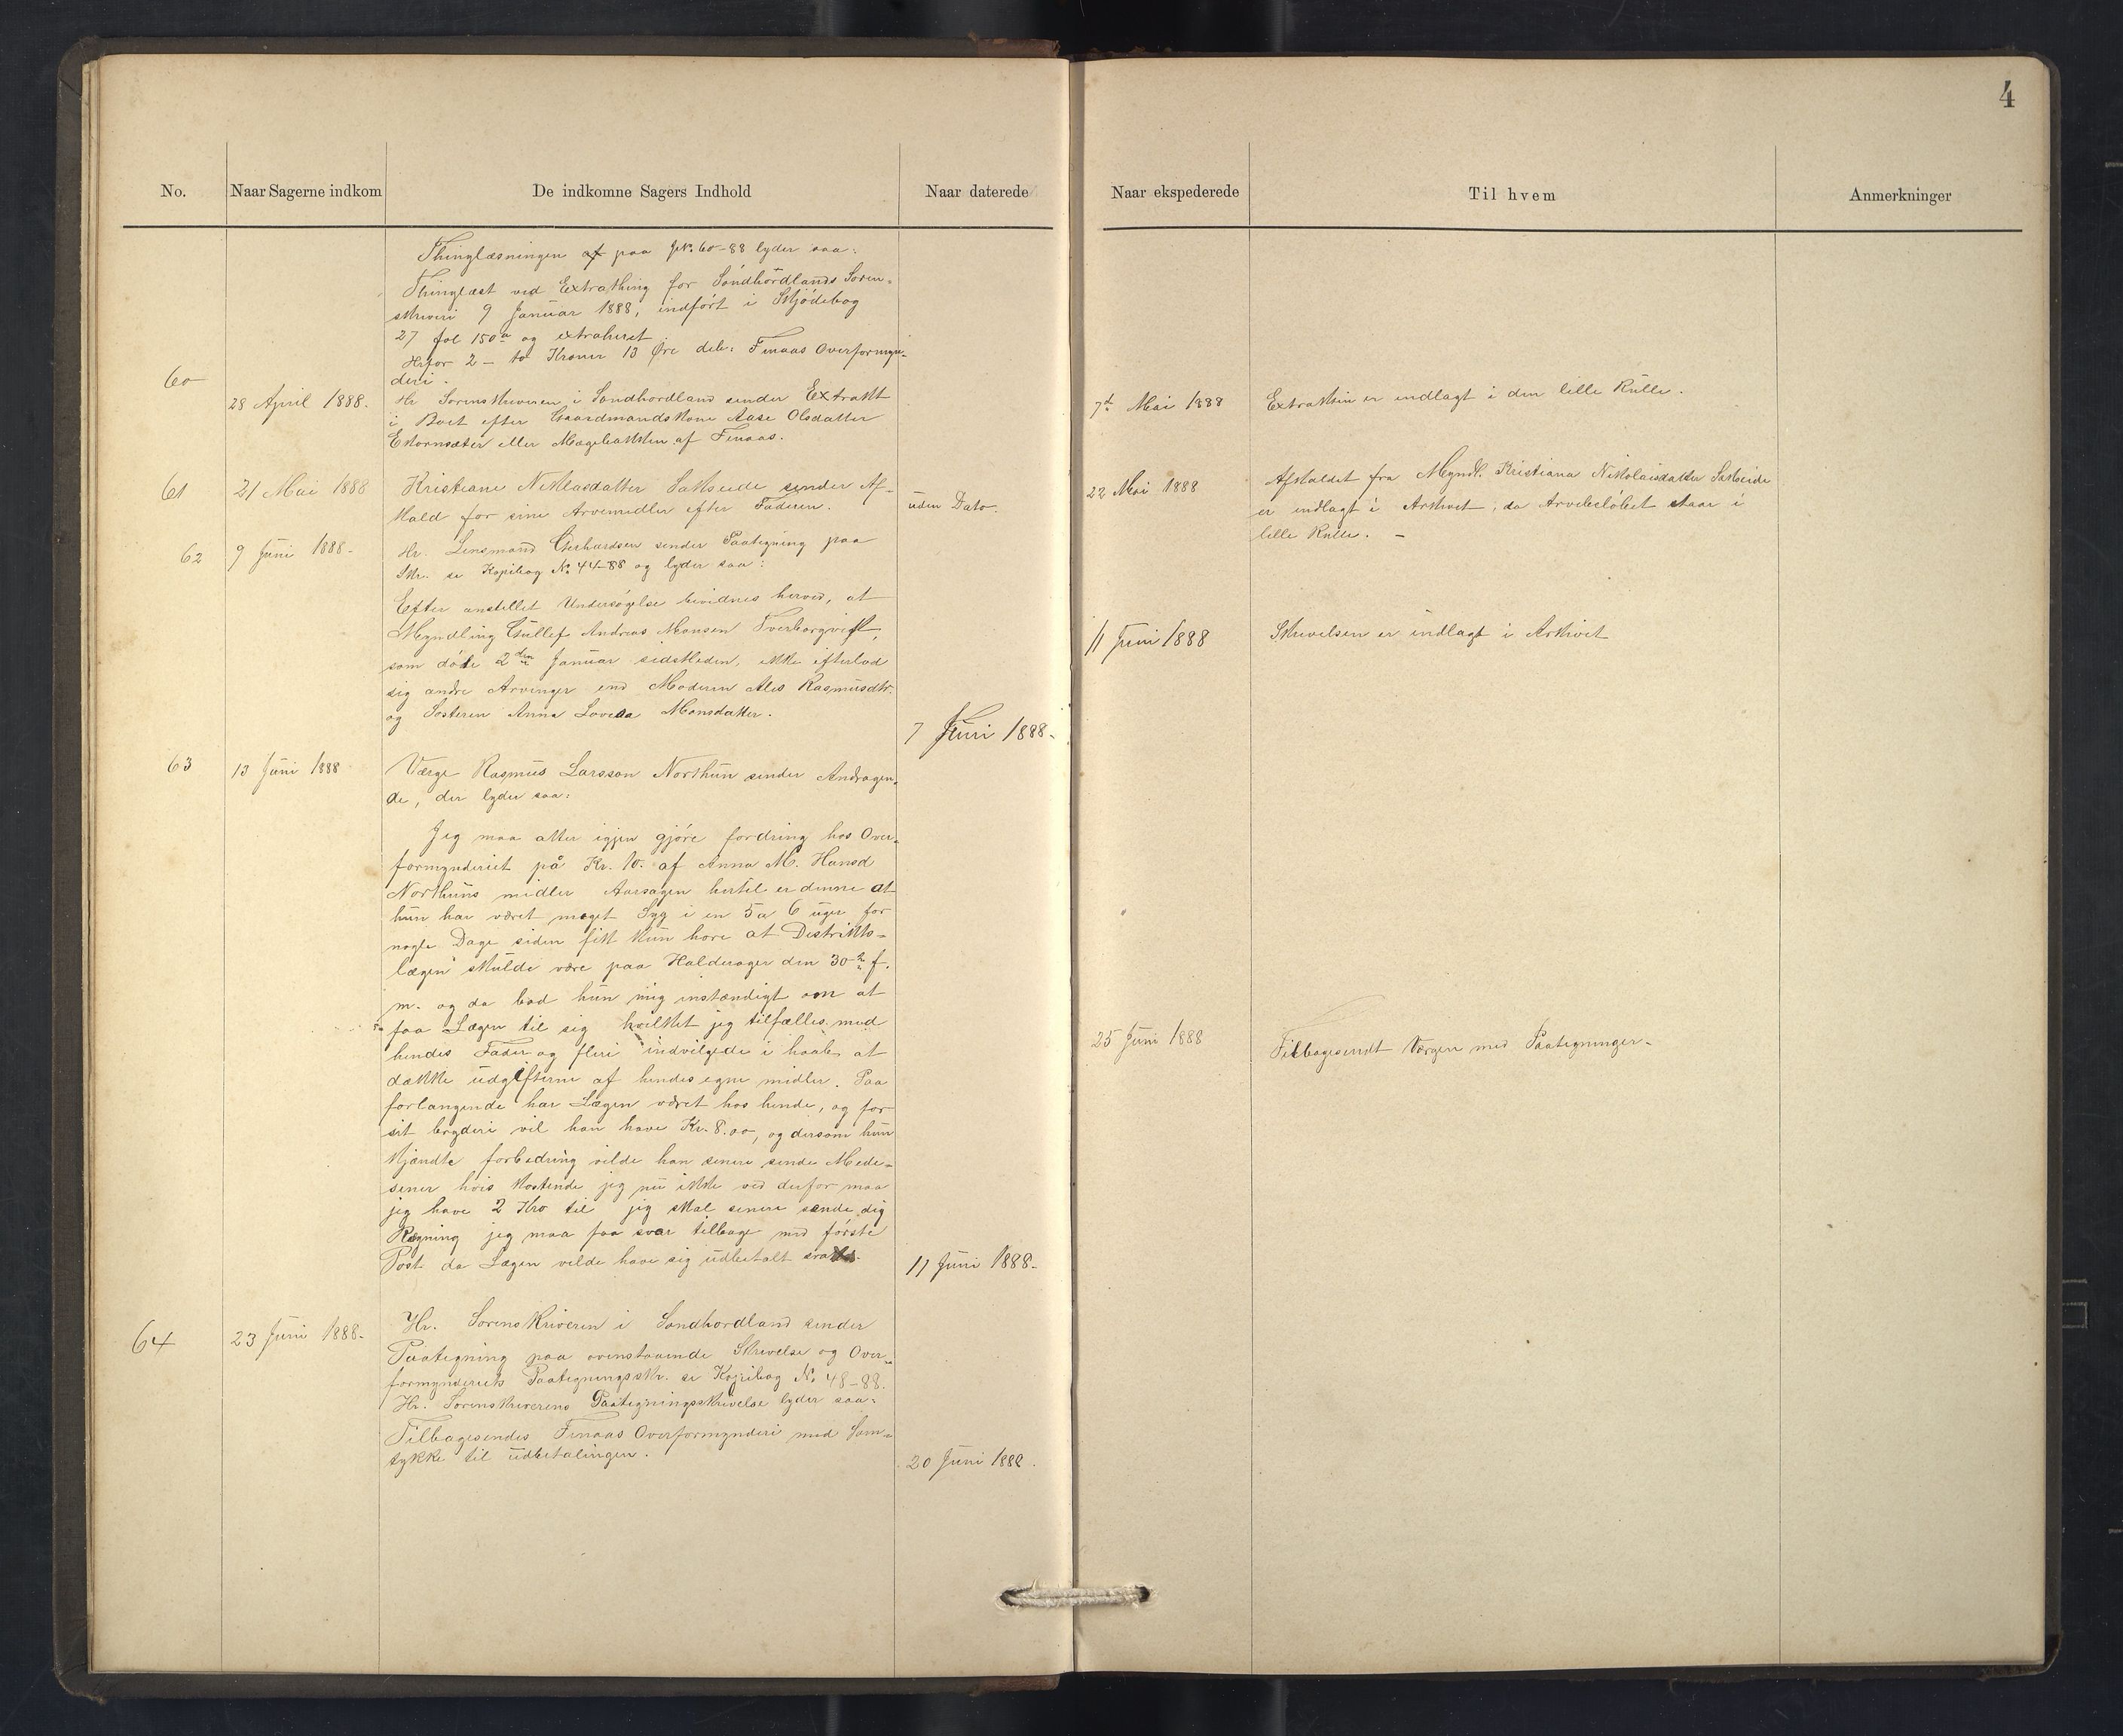 4
No.
Naar Sagerne indkom
De indkomne Sagers Indhold
Naar daterede
Naar ekspederede
Til hvem
Anmerkninger
Thinglæsningen af paa JN. 60-88 lyder saa:
Thinglæst ved Extrathing for Söndhördlands Soren-
skriveri 9 Januar 1888, indført i Skjödebog
27 fol 150a og extraheret
Herfor 2 - to Kroner 13 Øre deb: Finaas Overformyn-
deri.
60
28 April 1888.
Hr Sorenskriveren i Søndhordland sender Extrakt
i Boet efter Gaardmandskone Aase Olsdatter
Ekornsæter eller Mægebakken af Finaas.
7de Mai 1888
Extrakten er indlagt i den lille Rulle.
61
21 Mai 1888
Kristiane Niklasdatter Sakseide sender Af-
kald for sine Arvemidler efter Faderen.
uden Dato.
22 Mai 1888
Afkaldet fra Myndl. Kristiana Nikolaisdatter Sakseide
er indlagt i Arkivet, da Arvebeløbet staar i
lille Rulle. -
62
9 Juni 1888-
Hr. Lensmand Gerhardsen sender Paategning paa
Skr. se Kopibog No 44-88 og lyder saa:
Efter anstillet Undersøgelse bevidnes herved, at
Myndling Gullef Andreas Monsen Tverborgvik,
som döde 2den Januar sidstleden, ikke efterlod
sig andre Arvinger end Moderen Ales Rasmusdtr.
og Søsteren Anna Lovisa Monsdatter.
7 Juni 1888-
11 Juni 1888
Skrivelsen er indlagt i Arkivet
63
13 Juni 1888
Værge Rasmus Larsson Northun sender Andragen-
de, der lyder saa:
Jeg maa atter igjen gjöre fordring hos Over-
formynderiet på Kr. 10. af Anna M. Hansd
Northuns midler Aarsagen hertil er denne at
hun har været meget Syg i en 5 a 6 uger for
nogle Dage siden fik hun høre at Distrikts-
lægen skulde være paa Halderager den 30te f.
m. og da bad hun mig instændigt om at
faa Lægen til sig hvilket jeg tilfælles med
hendes Fader og flere indvilgede i haab at
dække udgifterne af hendes egne midler. Paa
forlangende har Lægen været hos hende, og for
sit bryderi vil han have Kr. 8.00, og dersom hun
kjændte forbedring vilde han senere sende Mede-
sener hvis kostende jeg nu ikke ved derfor maa
jeg have 2 Kro til jeg skal senere sende dig
Regning jeg maa faa svar tilbage med förste
Post da Lægen vilde have sig udbetalt
11 Juni 1888-
25 Juni 1888
Tilbagesendt Værgen med Paategninger-
64
23 Juni 1888-
Hr. Sorenskriveren i Søndhordland sender
Paategning paa ovenstaaende Skrivelse og Over-
formynderiets Paategningsskr. se Kopibog No 48-88.
Hr. Sorenskriverens Paategningsskrivelse lyder saa:
Tilbagesendes Finaas Overformynderi med Sam-
tykke til udbetalingen.
20 Juni 1888.